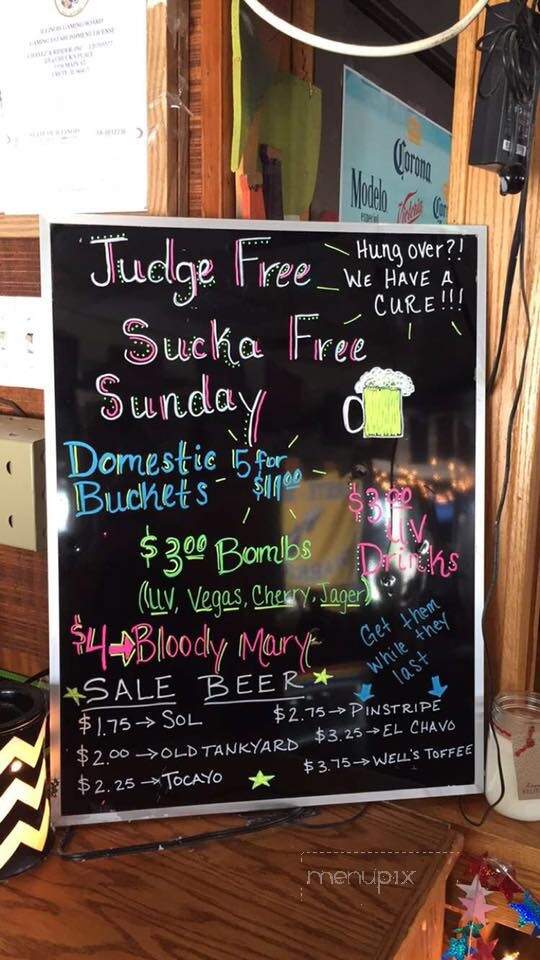 ILLINOIS GAMING BOARD
Corona
Modelo
especial
Judge Free
Hung over?!
WE HAVE A
CURE!!!
Sucka Free
Sunday
Domestic 5 for
Buckets $11.00
$3.00
UV
Drinks
$3.00 Bombs
(UV, Vegas, Cherry, Jager)
$4 → Bloody Mary
Get them
while they
last
SALE BEER
$1.75 → SOL
$2.75 → PINSTRIPE
$2.00 → OLD TANKYARD
$3.25 → EL CHAVO
$2.25 → TOCAYO
$3.75 → WELL'S TOFFEE
menupix